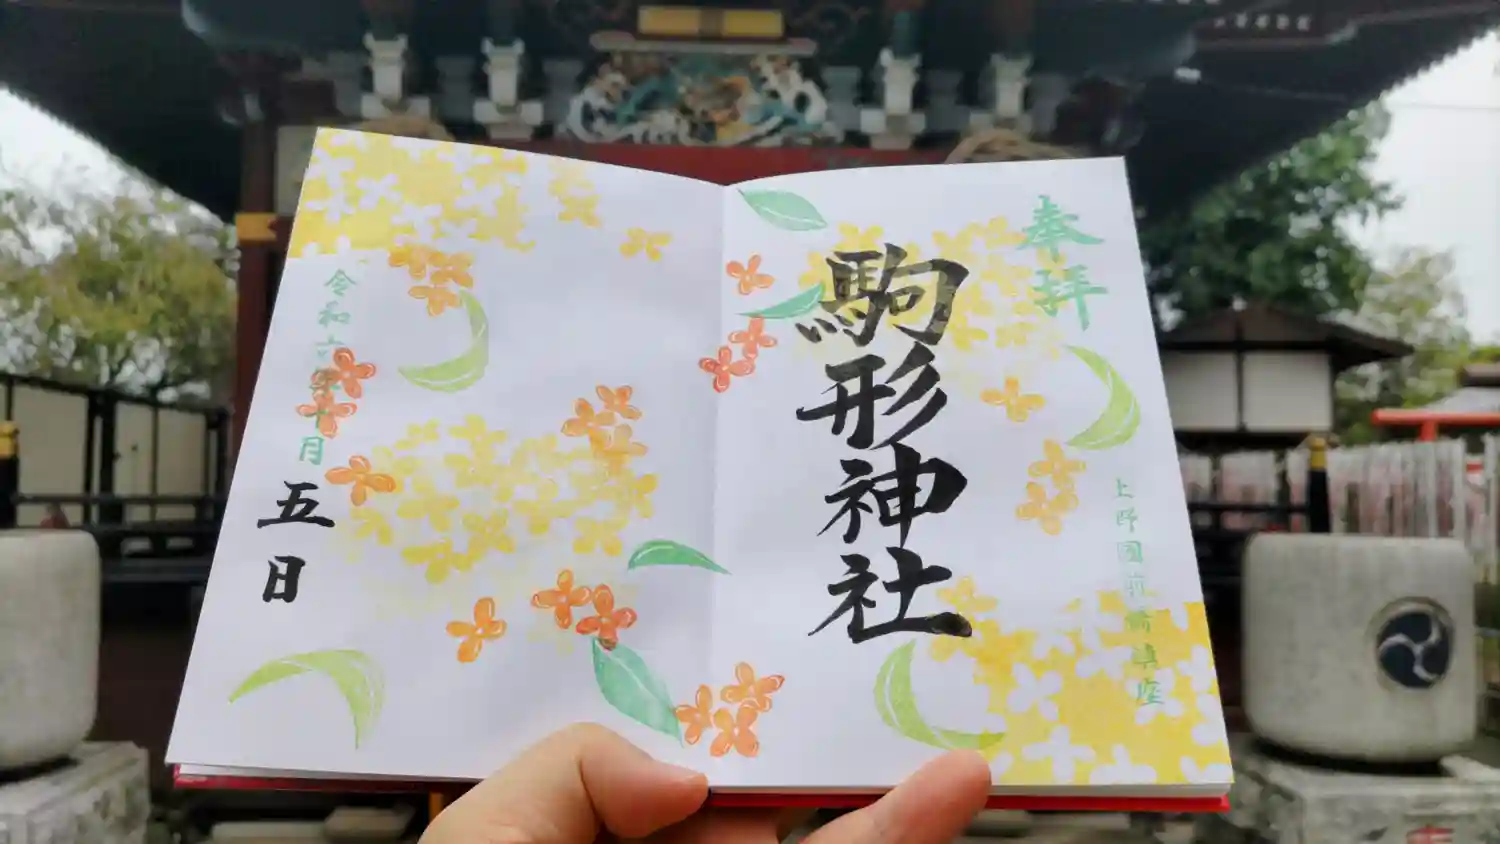 奉拝
駒形神社
上野國前橋鎮座
令和六年十月
五日